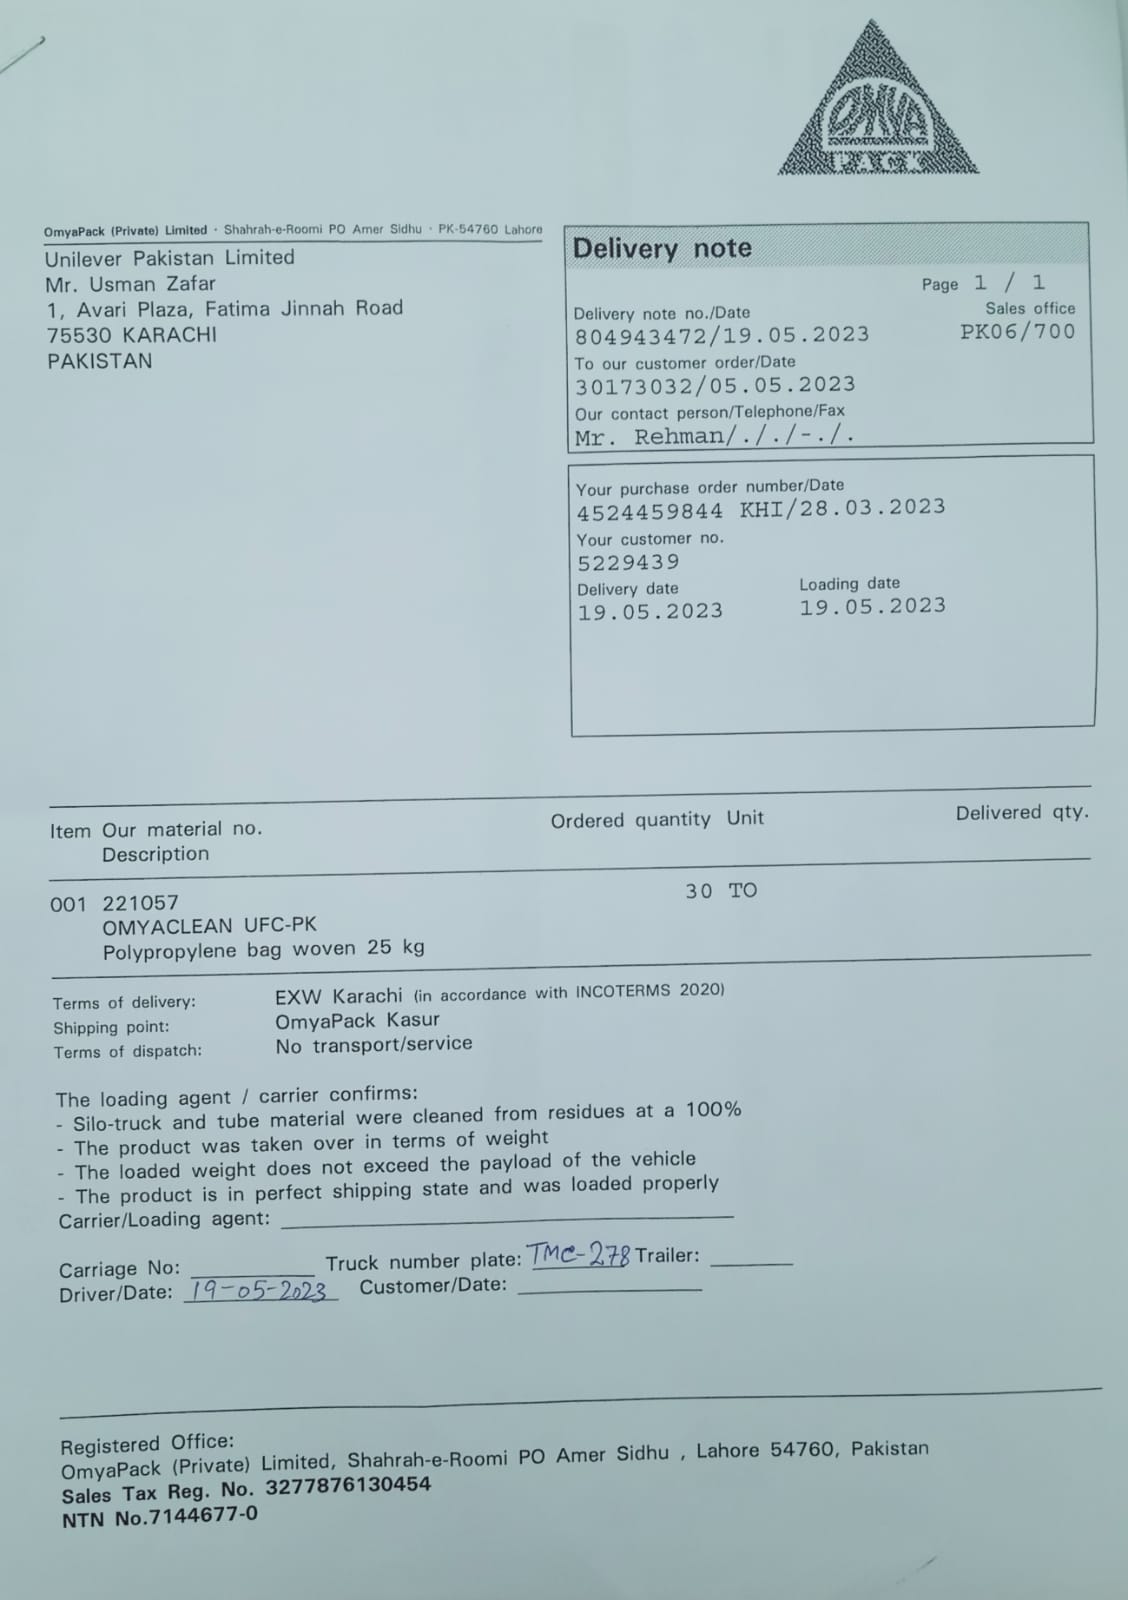 OMYA
PACK
OmyaPack (Private) Limited · Shahrah-e-Roomi PO Amer Sidhu · PK-54760 Lahore
Unilever Pakistan Limited
Mr. Usman Zafar
1, Avari Plaza, Fatima Jinnah Road
75530 KARACHI
PAKISTAN
Delivery note
Page 1 / 1
Delivery note no./Date Sales office
804943472/19.05.2023 PK06/700
To our customer order/Date
30173032/05.05.2023
Our contact person/Telephone/Fax
Mr. Rehman/././-./.
Your purchase order number/Date
4524459844 KHI/28.03.2023
Your customer no.
5229439
Delivery date Loading date
19.05.2023 19.05.2023
Item Our material no. Ordered quantity Unit Delivered qty.
Description
001 221057 30 TO
OMYACLEAN UFC-PK
Polypropylene bag woven 25 kg
Terms of delivery: EXW Karachi (in accordance with INCOTERMS 2020)
Shipping point: OmyaPack Kasur
Terms of dispatch: No transport/service
The loading agent / carrier confirms:
- Silo-truck and tube material were cleaned from residues at a 100%
- The product was taken over in terms of weight
- The loaded weight does not exceed the payload of the vehicle
- The product is in perfect shipping state and was loaded properly
Carrier/Loading agent:
Carriage No: Truck number plate: TMC-278 Trailer:
Driver/Date: 19-05-2023 Customer/Date:
Registered Office:
OmyaPack (Private) Limited, Shahrah-e-Roomi PO Amer Sidhu , Lahore 54760, Pakistan
Sales Tax Reg. No. 3277876130454
NTN No.7144677-0